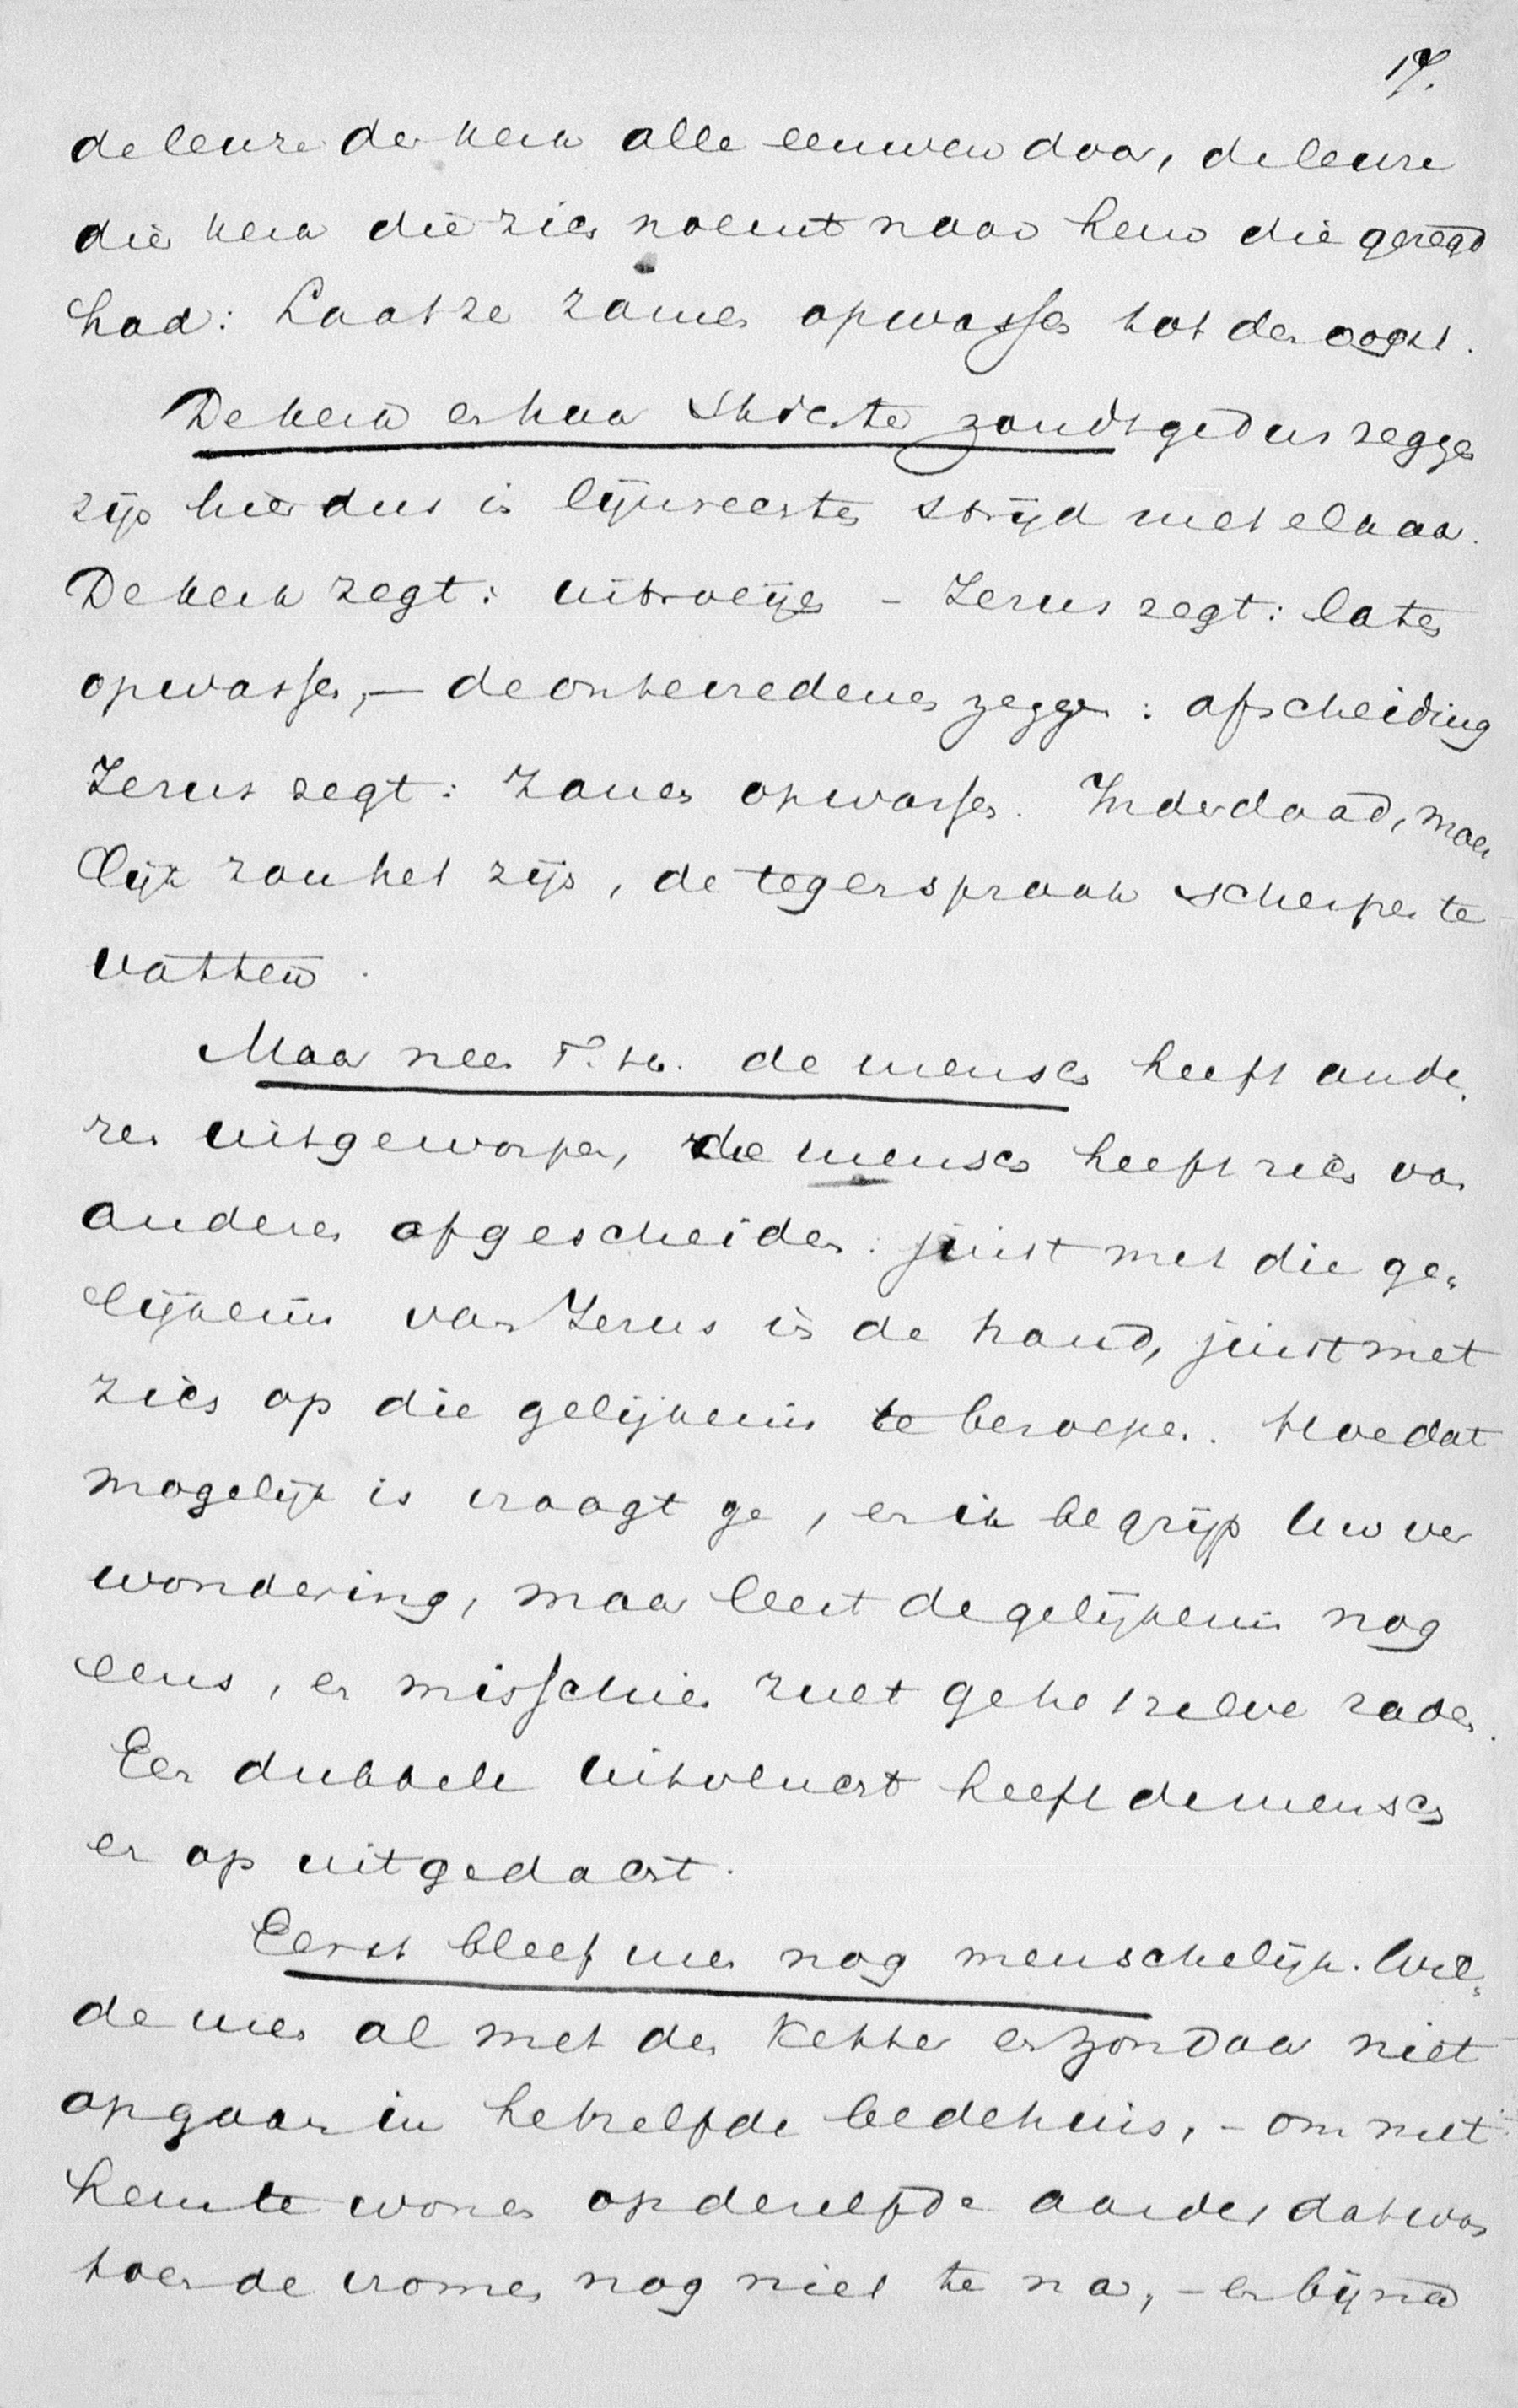 17.
de leuze der kerk alle eeuwen door, de leuze
der kerk die zich noemt naar hem die gezegd
had: Laat ze zamen opwassen tot den oogst.
De kerk en haar Stichter zoudt ge dus zeggen
zijn hier dus in lijnrechten strijd met elkaar.
De kerk zegt: uitroeijen – Jezus zegt: laten
opwassen, – de ontevredenen zeggen: afscheiding
Jezus zegt: zamen opwassen. Inderdaad, moei
lijk zou het zijn, de tegenspraak scherper te
vatten.
Maar neen T. H. de mensch heeft ande,
ren uitgeworpen, de mensch heeft zich van
anderen afgescheiden juist met die ge,
lijkenis van Jezus in de hand, juist met
zich op die gelijkenis te beroepen. Hoe dat
mogelijk is vraagt ge, en ik begrijp Uw ver
wondering, maar leest de gelijkenis nog
eens, en misschien zult ge het zelve raden.
Een dubbele uitvlucht heeft de mensch
er op uitgedacht.
Eerst bleef men nog menschelijk. Wil,
de men al met den Ketter en zondaar niet
opgaan in hetzelfde bedehuis, – om met
hem te wonen op dezelfde aarde dat was
toen de vromen nog niet te na, – en bijna